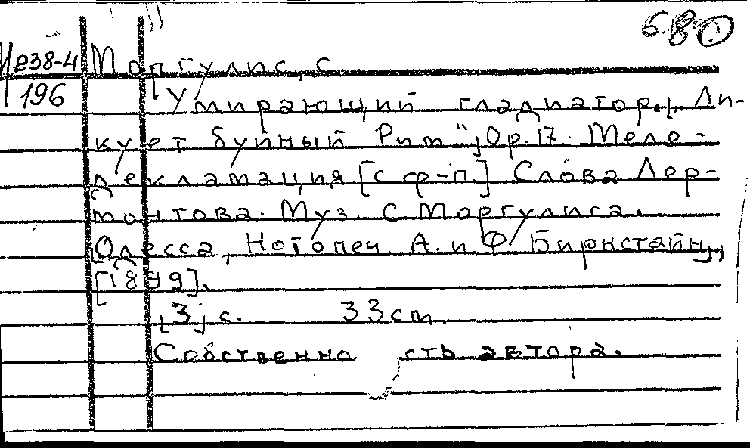 680
Р38-4 Моргулис, С
196 Умирающий гладиатор. „Ли-
кует буйный Рим", Ор. 17. Мело-
декламация [с ф-п.] Слова Лер-
монтова. Муз. С. Моргулиса.
Одесса, Нотопеч. А. и Ф. Биркстайн,
[18 9].
[3] с. 33 cm
Собственно сть автора.